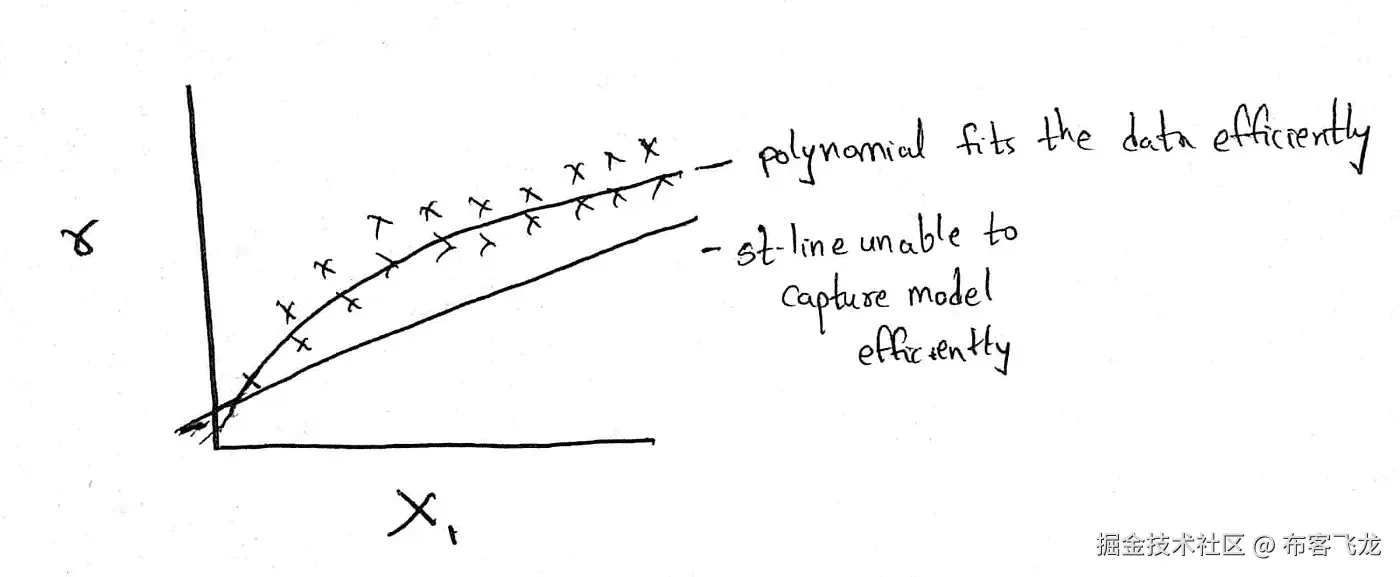 polynomial fits the data efficiently
- st-line unable to
capture model
efficiently
γ
X₁
掘金技术社区 @ 布客飞龙